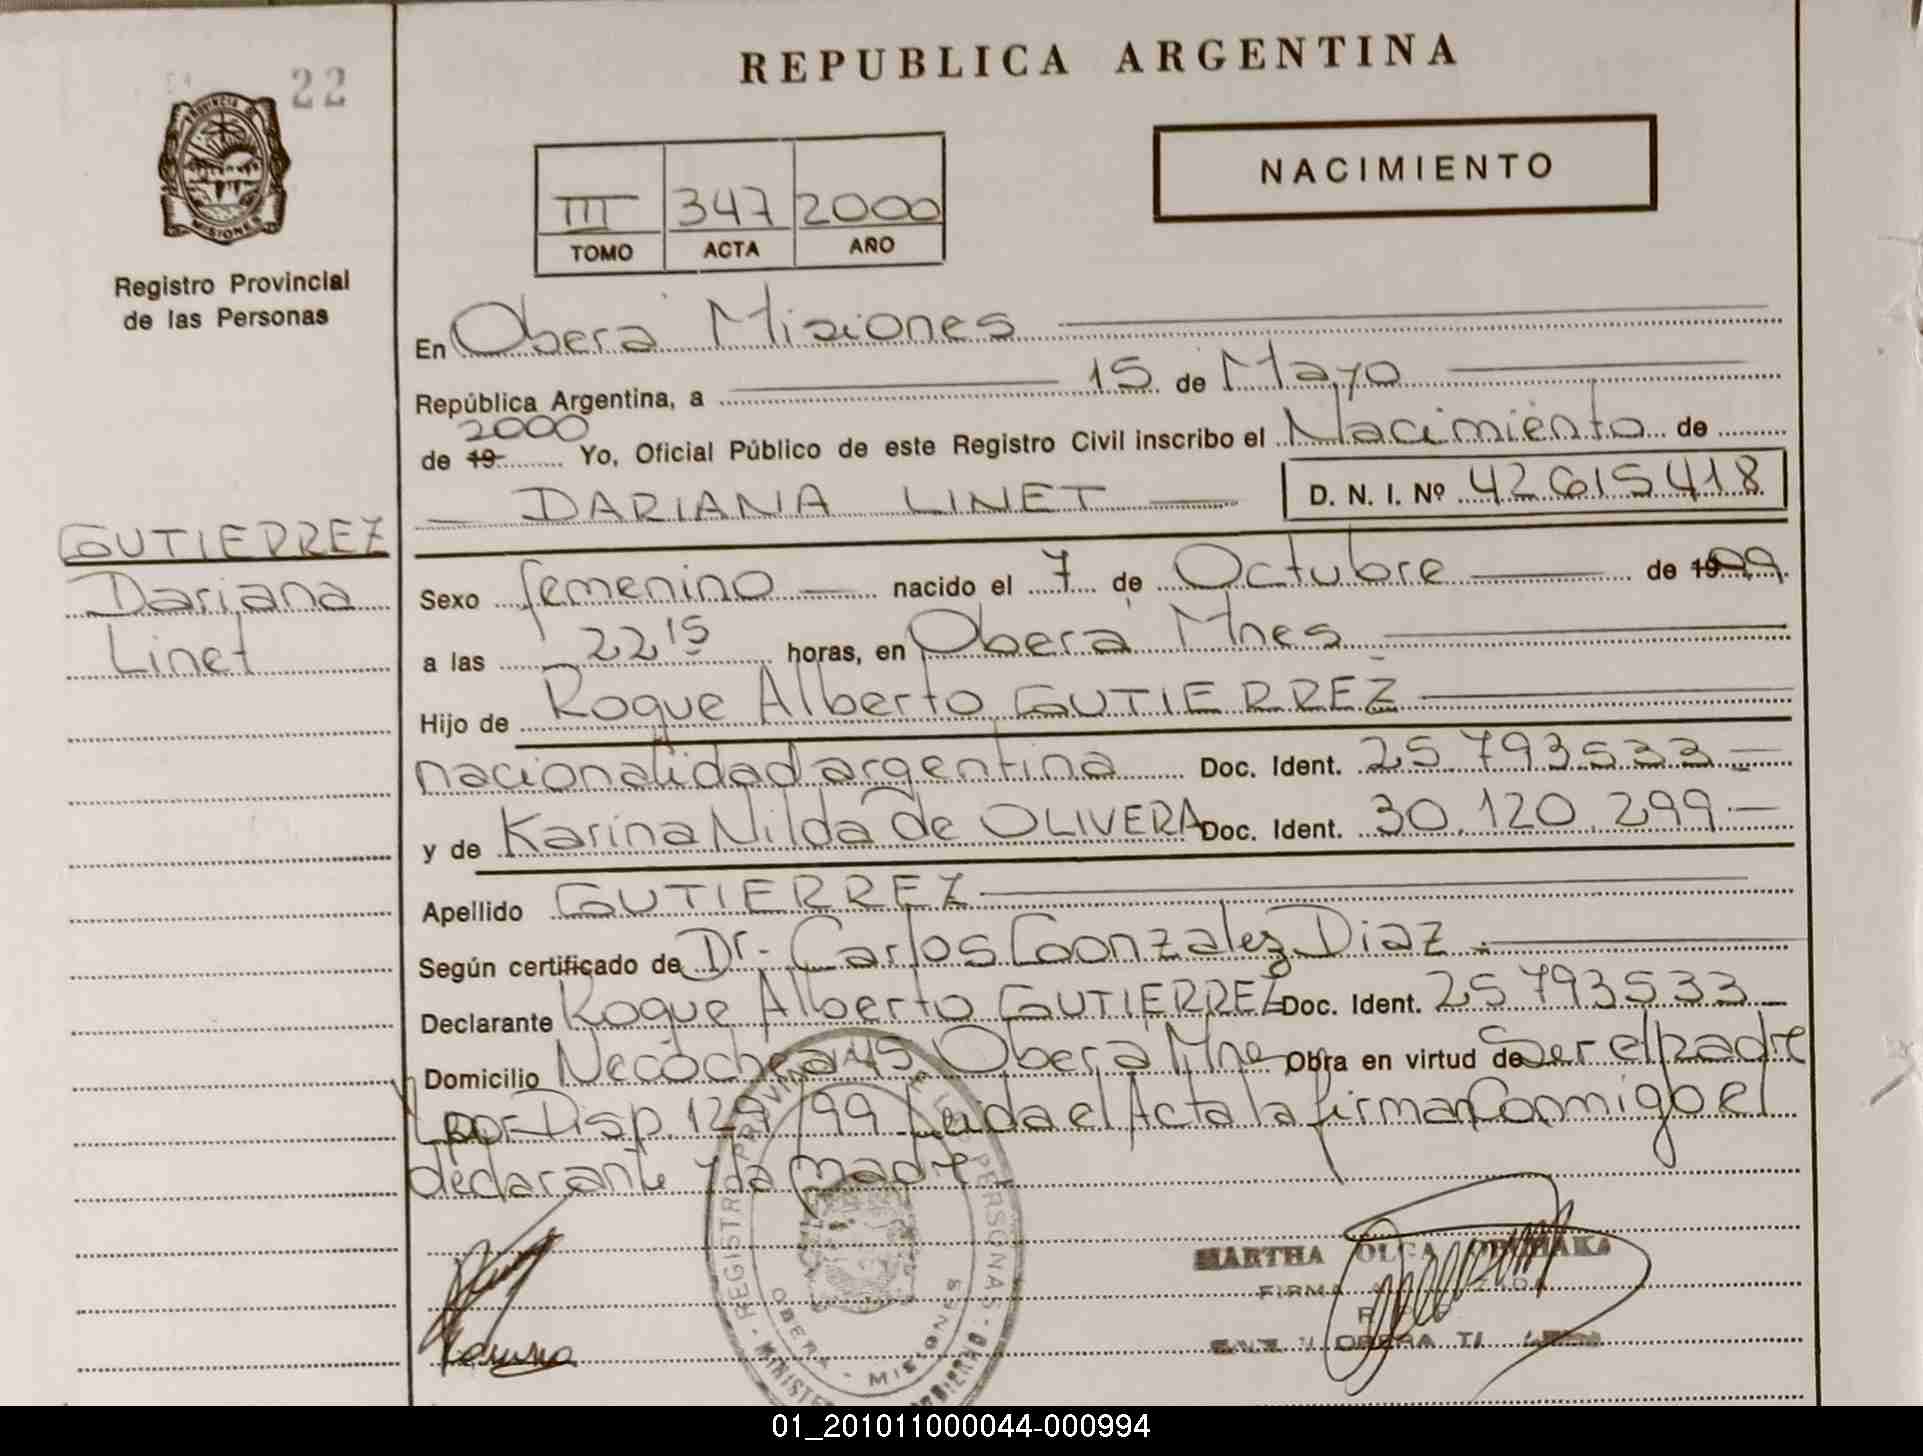 22
PROVINCIA DE
MISIONES
Registro Provincial
de las Personas
GUTIERREZ
Dariana
Linet
REPUBLICA ARGENTINA
III 347 2000
TOMO ACTA AÑO
NACIMIENTO
En Obera Misiones
República Argentina, a 15 de Mayo
2000
de 19 Yo, Oficial Público de este Registro Civil inscribo el Nacimiento de
DARIANA LINET D. N. I. Nº 42615418
Sexo femenino nacido el 7 de Octubre de 1999
a las 22 15 horas, en Obera Mnes
Hijo de Roque Alberto GUTIERREZ
nacionalidad argentina Doc. Ident. 25.793533
y de Karina Nilda de OLIVERA Doc. Ident. 30.120.299
Apellido GUTIERREZ
Según certificado de Dr. Carlos Gonzalez Diaz
Declarante Roque Alberto GUTIERREZ Doc. Ident. 25793533
Domicilio Necochea 45 Obera Mnes Obra en virtud de Ser el padre
y por Disp. 129/99 Leida el Acta la firman Conmigo el
declarante y la madre
Karina
REGISTRO PROVINCIAL DE LAS PERSONAS
OBERA - MISIONES
MARTHA OLGA
FIRMA
OBERA
01_201011000044-000994